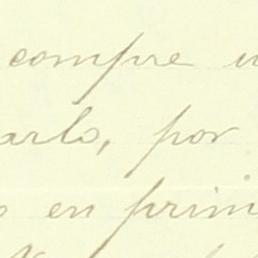 compre u
arlo, por
o en prim